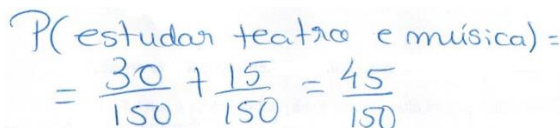 P(estudar teatro e música) =
= 30/150 + 15/150 = 45/150